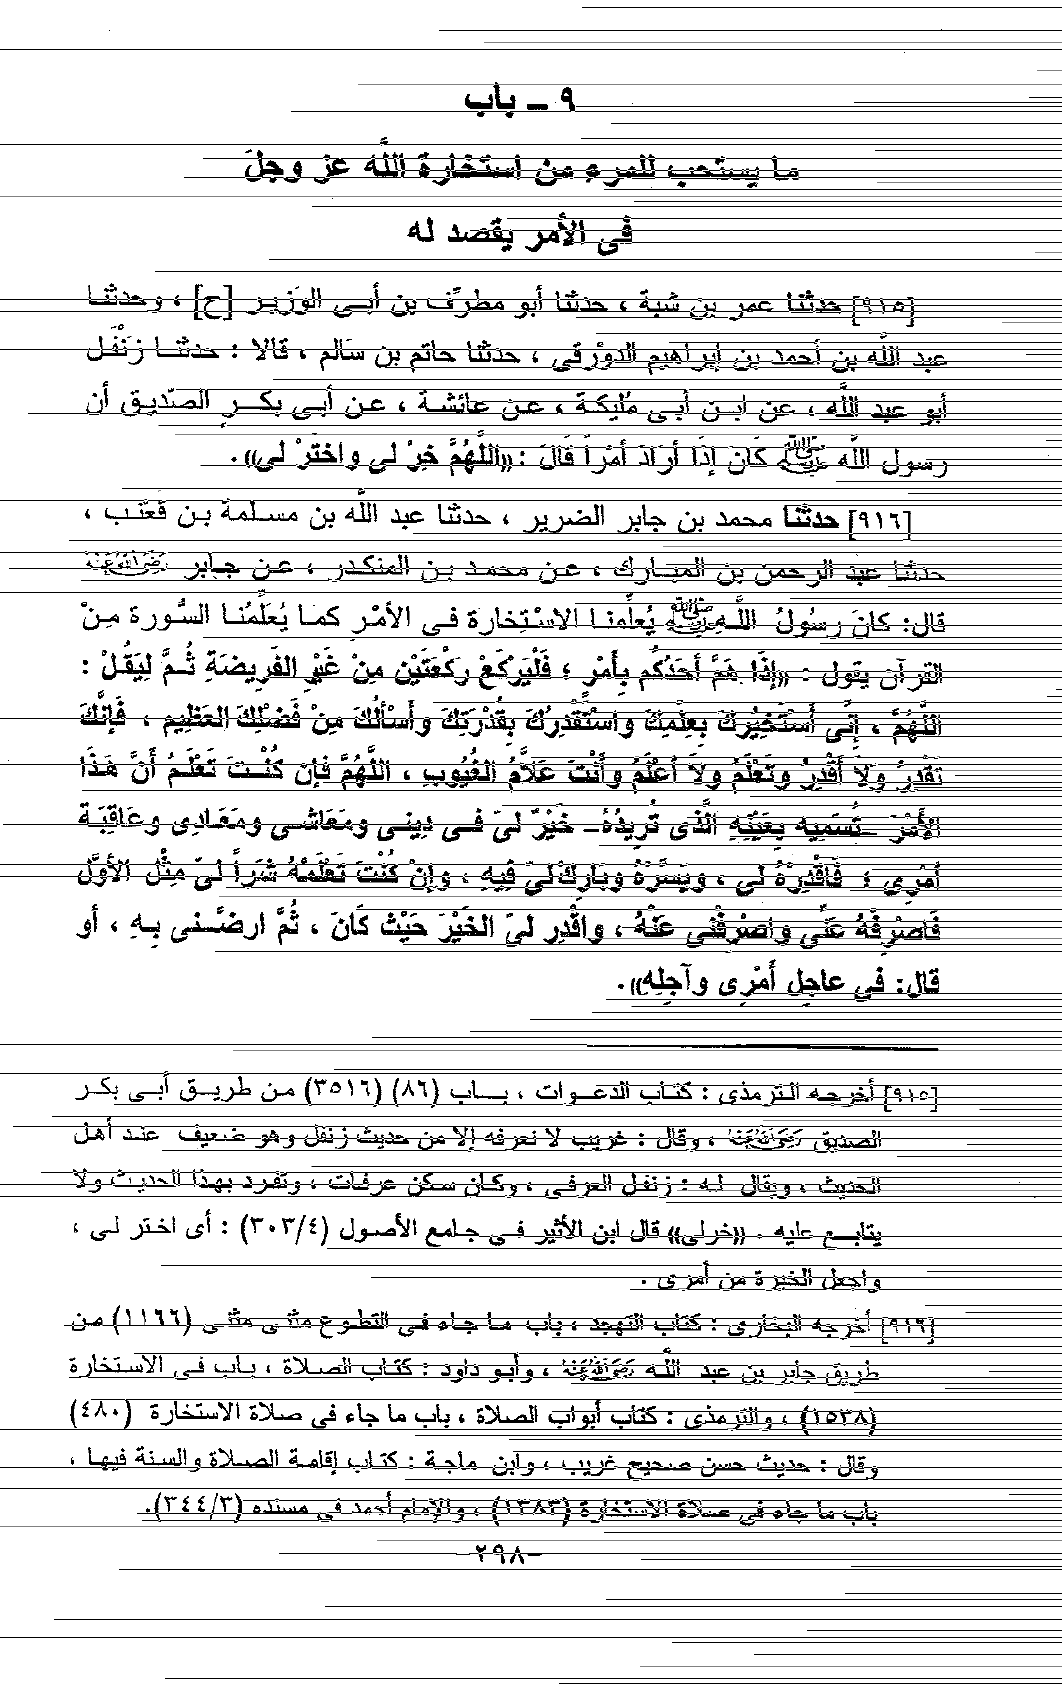 ٩ ـ باب
ما يستحب للمرء من استخارة اللَّه عز وجلّ
فى الأمر يقصد له
[٩١٥] حدثنا عمر بن شبة ، حدثنا أبو مطرِّف بن أبى الوَزير [ح] ، وحدثنا
عبد اللَّه بن أحمد بن إبراهيم الدوْرقى ، حدثنا حاتم بن سَالم ، قالا : حدثنا زَنْفَل
أبو عبد اللَّه ، عن ابن أبى مُليكة ، عن عائشة ، عن أبى بكر الصدّيق أن
رسول اللَّه ﷺ كَان إذَا أرَادَ أمْراً قَالَ : «اللَّهُمَّ خِرْ لى واخْترْ لى» .
[٩١٦] حدثنا محمد بن جابر الضرير ، حدثنا عبد اللَّه بن مسلمة بن قَعْنَب ،
حدثنا عبد الرحمن بن المبارك ، عن محمد بن المنكدر ، عن جابر رضي الله عنه
قال: كانَ رسُولُ اللَّهِ ﷺ يُعلِّمنا الاسْتِخارة فى الأمْر كما يُعَلِّمُنا السُّورة منْ
القرآن يقول : «إذَا هَمَّ أحَدُكُم بِأمْرٍ ؛ فَلْيَركَعْ ركْعَتَيْن مِنْ غَيْرِ الفَرِيضَةِ ثُمَّ لِيَقُلْ :
اللَّهُمَّ ، إنِّى أسْتَخْيُرِكَ بِعِلْمِكَ واسْتَقْدرُكَ بِقُدْرَتِكَ وأسْألُكَ مِنْ فَضْلِكَ العَظِيم ، فَإنَّكَ
تَقْدرُ ولاَ أقْدِرُ وتَعْلَمُ ولاَ أعْلَمُ وأنْتَ عَلاَّمُ الغُيُوبِ ، اللَّهُمَّ فإن كُنْتَ تَعْلَمُ أنَّ هَذَا
الأمْرَ ـ تُسَمِيه بِعَيْنِهِ الَّذى تُرِيدُهُ ـ خَيْرٌ لىَ فى دِينى ومَعَاشى ومَعَادِى وعَاقِبَة
أمْرِى ؛ فَاقْدِرْهُ لى ، ويَسِّرْهُ وبَارِكْ لىَ فِيهِ ، وإنْ كُنْتَ تَعْلَمْهُ شَراً لىَ مِثْل الأوَّل
فَاصْرِفْهُ عَنِّى واصْرِفْنى عَنْهُ ، واقْدِر لىَ الخَيْرَ حَيْث كَانَ ، ثُمَّ ارضِّنى بِهِ ، أو
قال: فى عاجِل أمْرِى وآجِلِه» .
[٩١٥] أخرجه الترمذى : كتاب الدعوات ، باب (٨٦) (٣٥١٦) من طريق أبى بكر
الصديق رضي الله عنه ، وقال : غريب لا نعرفه إلا من حديث زنفل وهو ضعيف عند أهل
الحديث ، ويقال له : زنفل العرفى ، وكان سكن عرفات ، وتفرد بهذا الحديث ولا
يتابع عليه . «خرلى» قال ابن الأثير فى جامع الأصول (٣٠٣/٤) : أى اختر لى ،
واجعل الخيرة من أمرى .
[٩١٦] أخرجه البخارى : كتاب التهجد ، باب ما جاء فى التطوع مثنى مثنى (١١٦٦) من
طريق جابر بن عبد اللَّه رضي الله عنه ، وأبو داود : كتاب الصلاة ، باب فى الاستخارة
(١٥٣٨) ، والترمذى : كتاب أبواب الصلاة ، باب ما جاء فى صلاة الاستخارة (٤٨٠)
وقال : حديث حسن صحيح غريب ، وابن ماجة : كتاب إقامة الصلاة والسنة فيها ،
باب ما جاء فى صلاة الاستخارة (١٣٨٣) ، والإمام أحمد فى مسنده (٣٤٤/٣).
-٢٩٨-